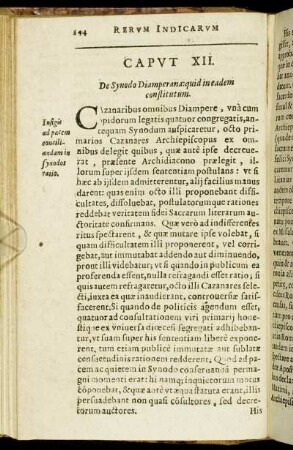 244 RERVM INDICARVM
CAPVT XII.
De Synodo Diamperana: quid in eadem
constitutum.
CAzanaribus omnibus Diampere, vnà cum
opidorum legatis quatuor congregatis, an-
tequam Synodum auspicaretur, octo pri-
marios Cazanares Archiepiscopus ex om
nibus delegit quibus, quæ antè ipse decreue-
rat, præsente Archidiacono prælegit, il-
lorum super iisdem sententiam postulans: vt si
hæc ab iisdem admitterentur, alij facilius manus
darent: quas enim octo illi proponebant diffi-
cultates, dissoluebat, postulatorumque rationes
reddebat veritatem fidei Sacrarum literarum au-
ctoritate confirmans. Quò verò ad indifferentes
ritus spectarent, & quæ mutare ipse volebat, si
quam difficultatem illi proponerent, vel corri-
gebat, aut immutabat addendo aut detrahendo,
pront illi videbatur; vt si quando in publicum ea
proferenda essent, nulla refragandi esset ratio; si
quis autem refragaretur, octo illi Cazanares sele-
cti, iuxta ea quæ inaudierant, controuersiæ satis-
facerent. Si quando de politicis agendum esset,
quatuor ad consultationem viri primarij hone-
stique ex vniuersa diœcesi segregati adhibeban-
tur, vt suam super his sententiam liberè expone-
rent, tum etiam publicè aut sublatæ ant additæ
consuetudinis rationem redderent. Quod ad pa-
cem ac quietem in Synodo conseruandam perma-
gni momenti erat: hi namq; inquietorum motus
compōnebāt, & quæ aut vetæ aut statuta erant, illis
persuadebant non quasi cōsultores, sed decre-
torum auctores. His
Insigis
ad pacem
concili-
andam in
Synodos
ratio.